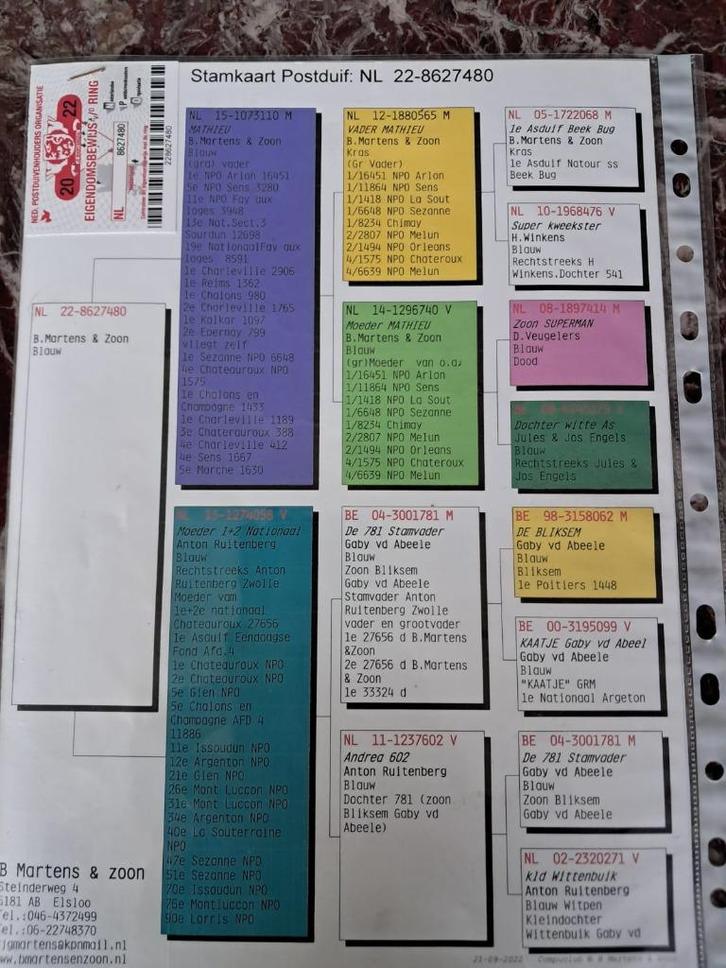 Stamkaart Postduif: NL 22-8627480
NED. POSTDUIVENHOUDERS ORGANISATIE
20 22
EIGENDOMSBEWIJS v/d RING
NL 8627480
228627480
NL 22-8627480
B.Martens & Zoon
Blauw
NL 15-1073110 M
MATHIEU
B.Martens & Zoon
Blauw
(gra) vader
1e NPO Arlon 16451
5e NPO Sens 3280
11e NPO Fay aux
loges 3948
13e Nat.Sect.3
Sourdun 12698
19e NationaalFay aux
loges 8591
1e Charleville 2906
1e Reims 1362
1e Chalons 980
2e Charleville 1765
1e Kalkar 1097
2e Epernay 799
vliegt zelf
1e Sezanne NPO 6648
4e Chateauroux NPO
1575
1e Chalons en
Champagne 1433
1e Charleville 1189
3e Chaterauroux 388
4e Charleville 412
4e Sens 1667
5e Marche 1630
NL 15-1274056 V
Moeder 1+2 Nationaal
Anton Ruitenberg
Blauw
Rechtstreeks Anton
Ruitenberg Zwolle
Moeder vam
1e+2e nationaal
Chateauroux 27656
1e Asduif Eendaagse
Fond Afd.4
1e Chateauroux NPO
2e Chateauroux NPO
5e Gien NPO
5e Chalons en
Champagne AFD 4
11886
11e Issoudun NPO
12e Argenton NPO
21e Gien NPO
26e Mont Luccon NPO
31e Mont Luccon NPO
34e Argenton NPO
40e La Souterraine
NPO
47e Sezanne NPO
51e Sezanne NPO
70e Issoudun NPO
76e Montluccon NPO
90e Lorris NPO
NL 12-1880565 M
VADER MATHIEU
B.Martens & Zoon
Kras
(Gr Vader)
1/16451 NPO Arlon
1/11864 NPO Sens
1/1418 NPO La Sout
1/6648 NPO Sezanne
1/8234 Chimay
2/2807 NPO Melun
2/1494 NPO Orleans
4/1575 NPO Chateroux
4/6639 NPO Melun
NL 14-1296740 V
Moeder MATHIEU
B.Martens & Zoon
Blauw
(gr)Moeder van o.a.
1/16451 NPO Arlon
1/11864 NPO Sens
1/1418 NPO La Sout
1/6648 NPO Sezanne
1/8234 Chimay
2/2807 NPO Melun
2/1494 NPO Orleans
4/1575 NPO Chateroux
4/6639 NPO Melun
BE 04-3001781 M
De 781 Stamvader
Gaby vd Abeele
Blauw
Zoon Bliksem
Gaby vd Abeele
Stamvader Anton
Ruitenberg Zwolle
vader en grootvader
1e 27656 d B.Martens
&Zoon
2e 27656 d B.Martens
& Zoon
1e 33324 d
NL 11-1237602 V
Andrea 602
Anton Ruitenberg
Blauw
Dochter 781 (zoon
Bliksem Gaby vd
Abeele)
NL 05-1722068 M
1e Asduif Beek Bug
B.Martens & Zoon
Kras
1e Asduif Natour ss
Beek Bug
NL 10-1968476 V
Super kweekster
H.Winkens
Blauw
Rechtstreeks H
Winkens.Dochter 541
NL 08-1897414 M
Zoon SUPERMAN
D.Veugelers
Blauw
Dood
Dochter witte As
Jules & Jos Engels
Blauw
Rechtstreeks Jules &
Jos Engels
BE 98-3158062 M
DE BLIKSEM
Gaby vd Abeele
Blauw
Bliksem
1e Poitiers 1448
BE 00-3195099 V
KAATJE Gaby vd Abeel
Gaby vd Abeele
Blauw
"KAATJE" GRM
1e Nationaal Argeton
BE 04-3001781 M
De 781 Stamvader
Gaby vd Abeele
Blauw
Zoon Bliksem
Gaby vd Abeele
NL 02-2320271 V
kld Wittenbuik
Anton Ruitenberg
Blauw Witpen
Kleindochter
Wittenbuik Gaby vd
B Martens & zoon
Steinderweg 4
6181 AB Elsloo
Tel.:046-4372499
Tel.:06-22748370
jgmartens@kpnmail.nl
www.bmartensenzoon.nl
21-09-2022 Compuclub © B Martens & zoon